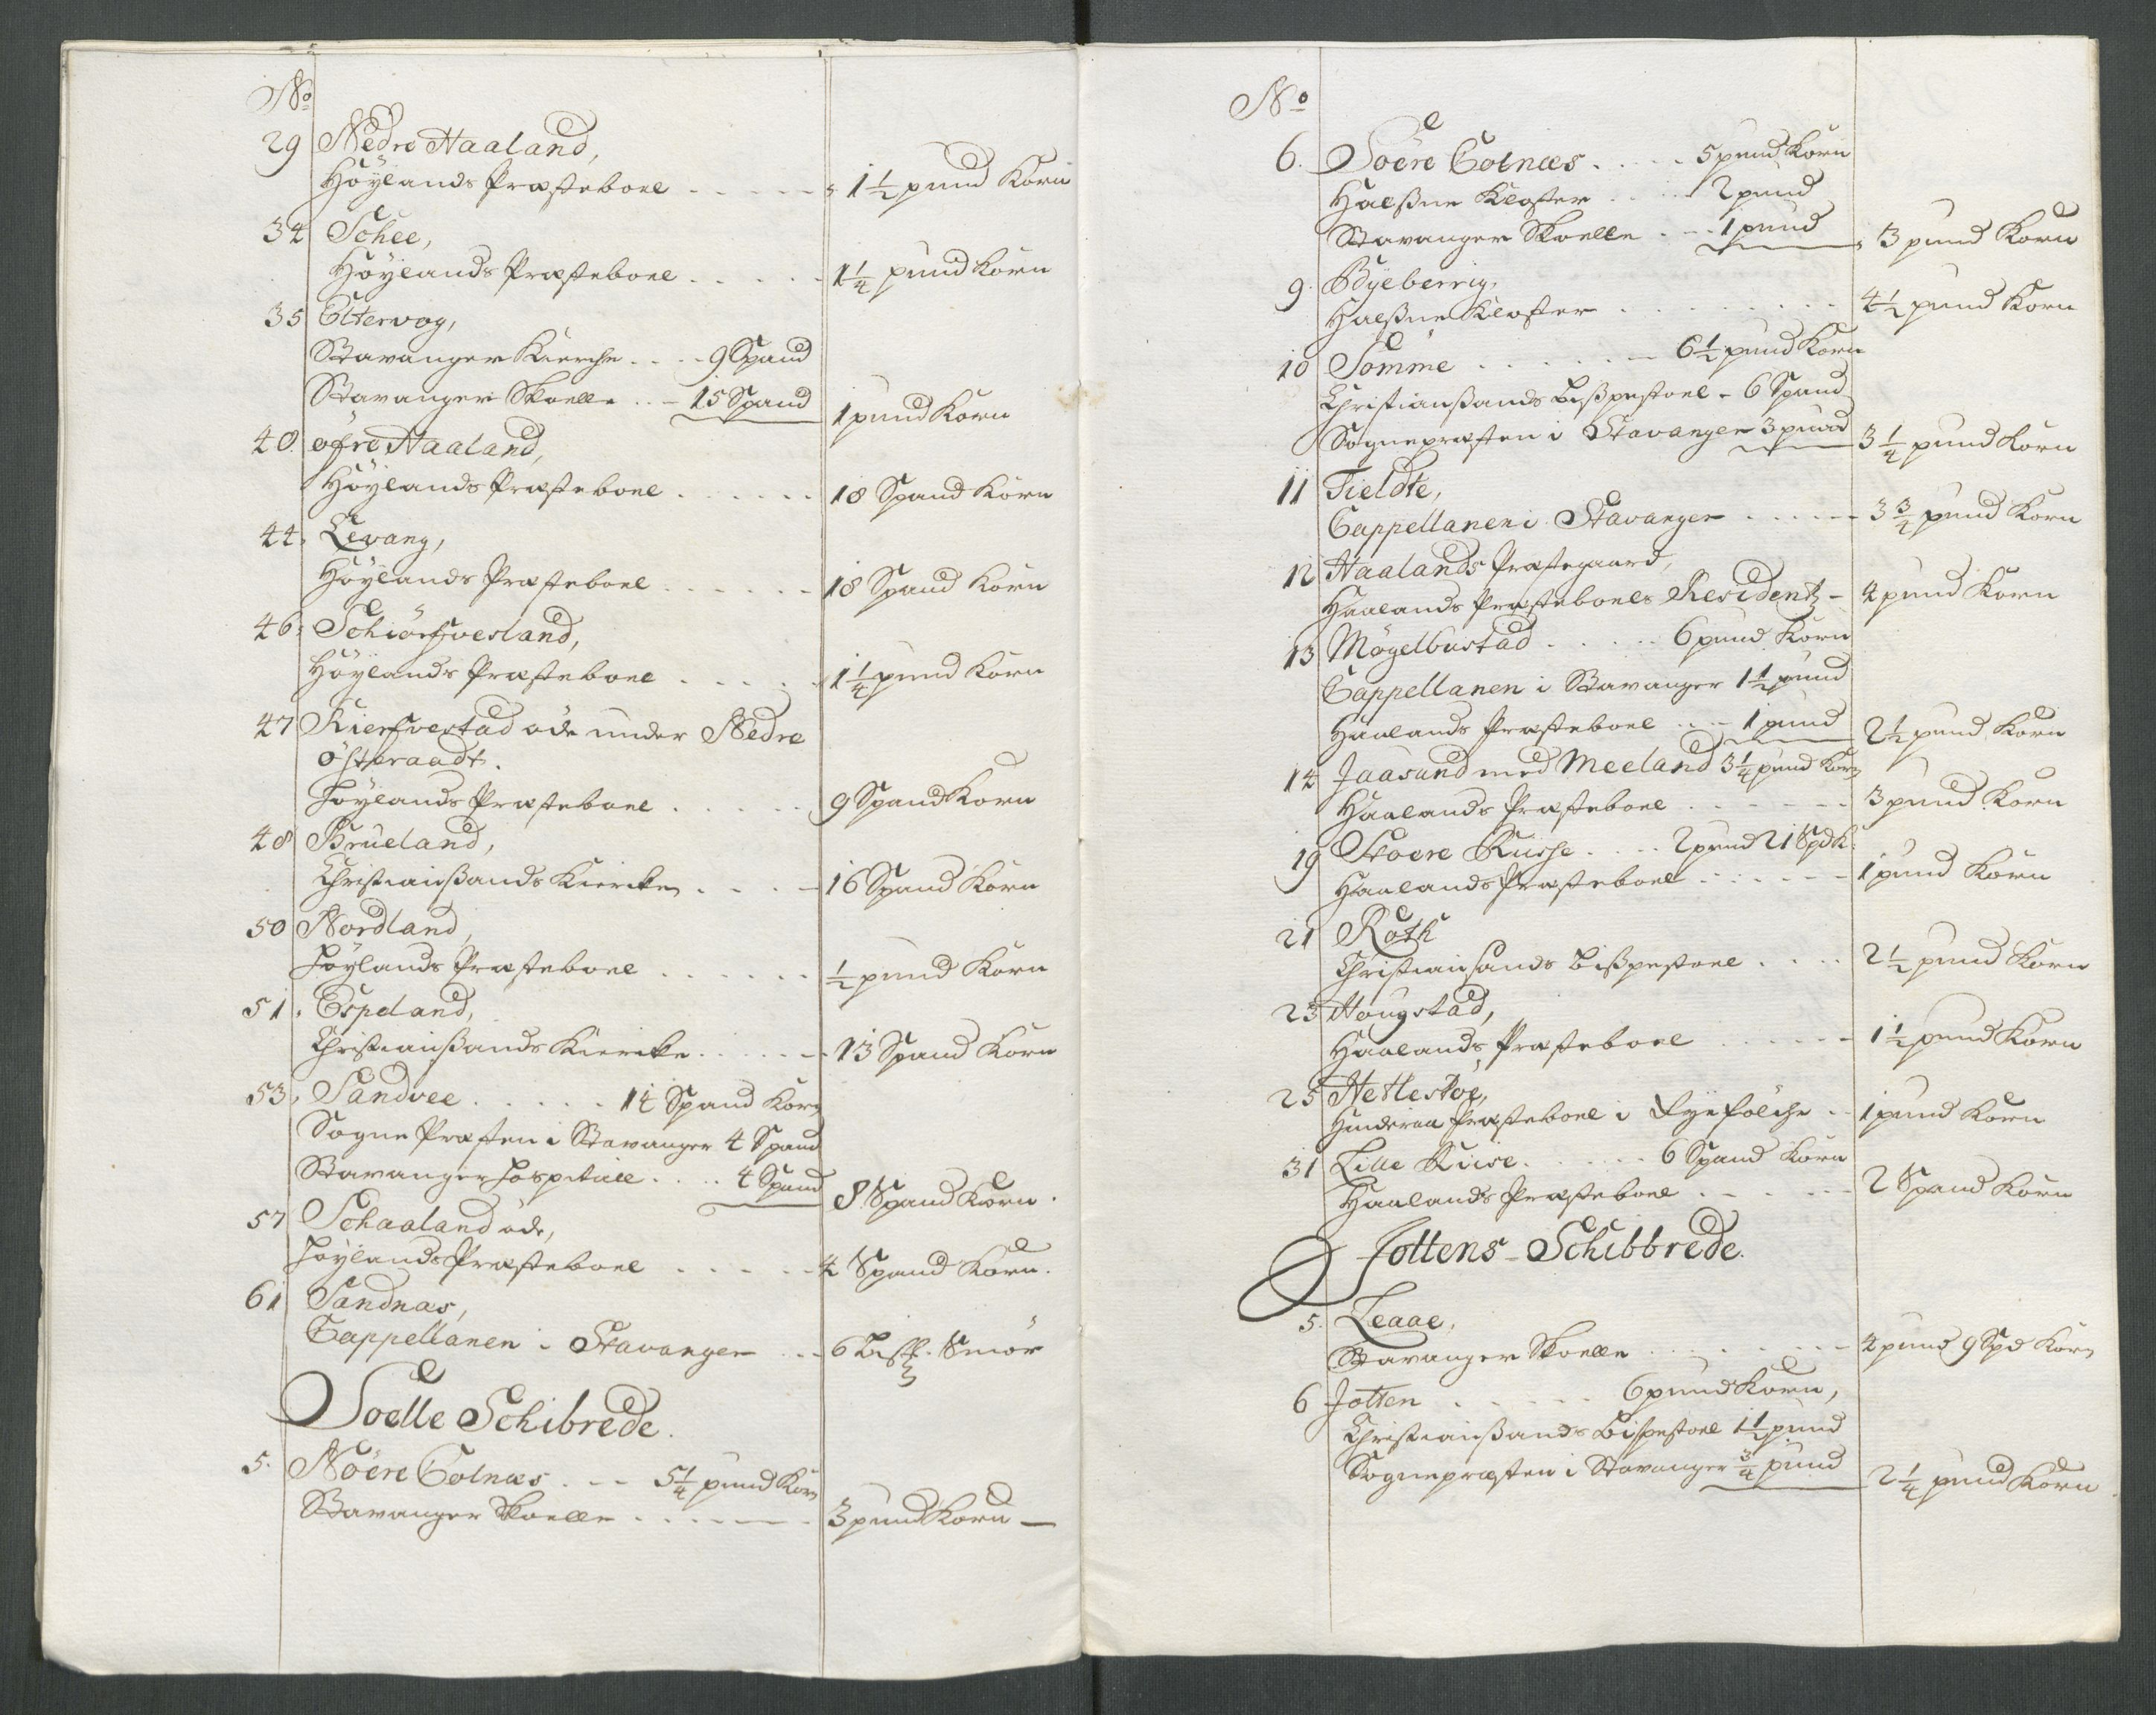 No
29 Nedre Haaland,
Höylands Præsteboel . . . . . 1 1/2 pund Korn
34 Schee,
Höylands Præsteboel . . . . . 1 1/4 pund Korn
35 Eltervog,
Stavanger Kierche . . . 9 Spand
Stavanger Skoelle . . . 15 Spand 1 pund Korn
40. øfre Haaland,
Höylands Præsteboel . . . . . . 18 Spand Korn
44. Levang,
Höylands Præsteboel . . . . . . 18 Spand Korn
46. Schiörfsvesland,
Höylands Præsteboel . . . . . 1 1/4 pund Korn
47 Kierfvestad öde under Nedre
Östraadt.
Höylands Præsteboel . . . . . 9 Spand Korn
48 Brueland,
Christiansands Kiercke . . . . 16 Spand Korn
50 Nordland,
Höylands Præsteboel . . . . . . 1/2 pund Korn
51. Espeland,
Christiansands Kiercke . . . . . . 13 Spand Korn
53. Sandvee . . . . . 14 Spand Korn
Sogne Præsten i Stavanger 4 Spand
Stavanger Hospitale . . . . 4 Spand 8 Spand Korn.
57 Schaaland öde,
Höylands Præsteboel . . . . . 4 Spand Korn.
61 Sandnæs,
Cappellanen i Stavanger . . . 6 Smör
Soelle Schibrede.
5. Nöere Colnæs . . . 5 1/4 pund Korn
Stavanger Skoelle . . . . . . . 3 pund Korn —
No
6. Soëre Colnæs . . . . . 5 pund Korn
Halsne Kloster . . . . 2 pund
Stavanger Skoelle . . . 1 pund 3 pund Korn
9. Byeberrig,
Halsne Kloster . . . . . . . . 4 1/2 pund Korn
10 Somme . . . . . . 6 1/2 pund Korn
Christiansands Bispestoel - 6 Spand
Sognepræsten i Stavanger 3 pund 3 1/4 pund Korn
11 Tieldte,
Cappellanen i Stavanger . . . . . 3 3/4 pund Korn
12 Haalands Præstegaard,
Haalands Præsteboels Residentz - 4 pund Korn
13 Mögelbustad . . . . . 6 pund Korn
Cappellanen i Stavanger 1 1/2 pund
Haalands Præsteboel . . . 1 pund 2 1/2 pund Korn
14 Jaasund med Meeland 3 1/4 pund Korn
Haalands Præsteboel . . . . . . 3 pund Korn
19 Stoere Riisse . . . . 2 pund 21 Spd K:
Haalands Præsteboel . . . . . . 1 pund Korn
21 Röth
Christiansands Bispestoel . . . . 2 1/2 pund Korn
23 Hougstad,
Haalands Præsteboel . . . . . . 1 1/2 pund Korn
25 Hettestöe,
Hinderaa Præsteboel i Ryefölche . . 1 pund Korn
31 Lille Riise . . . . . . 6 Spand Korn
Haalands Præsteboel . . . . . . 2 Spand Korn
Jottens - Schibbrede.
5. Leaae,
Stavanger Skoelle . . . . . . . 4 pund 9 Spd Korn
6 Jotten . . . . . 6 pund Korn,
Christiansands Bispestoel 1 1/2 pund
Sognepræsten i Stavanger 3/4 pund 2 1/4 pund Korn